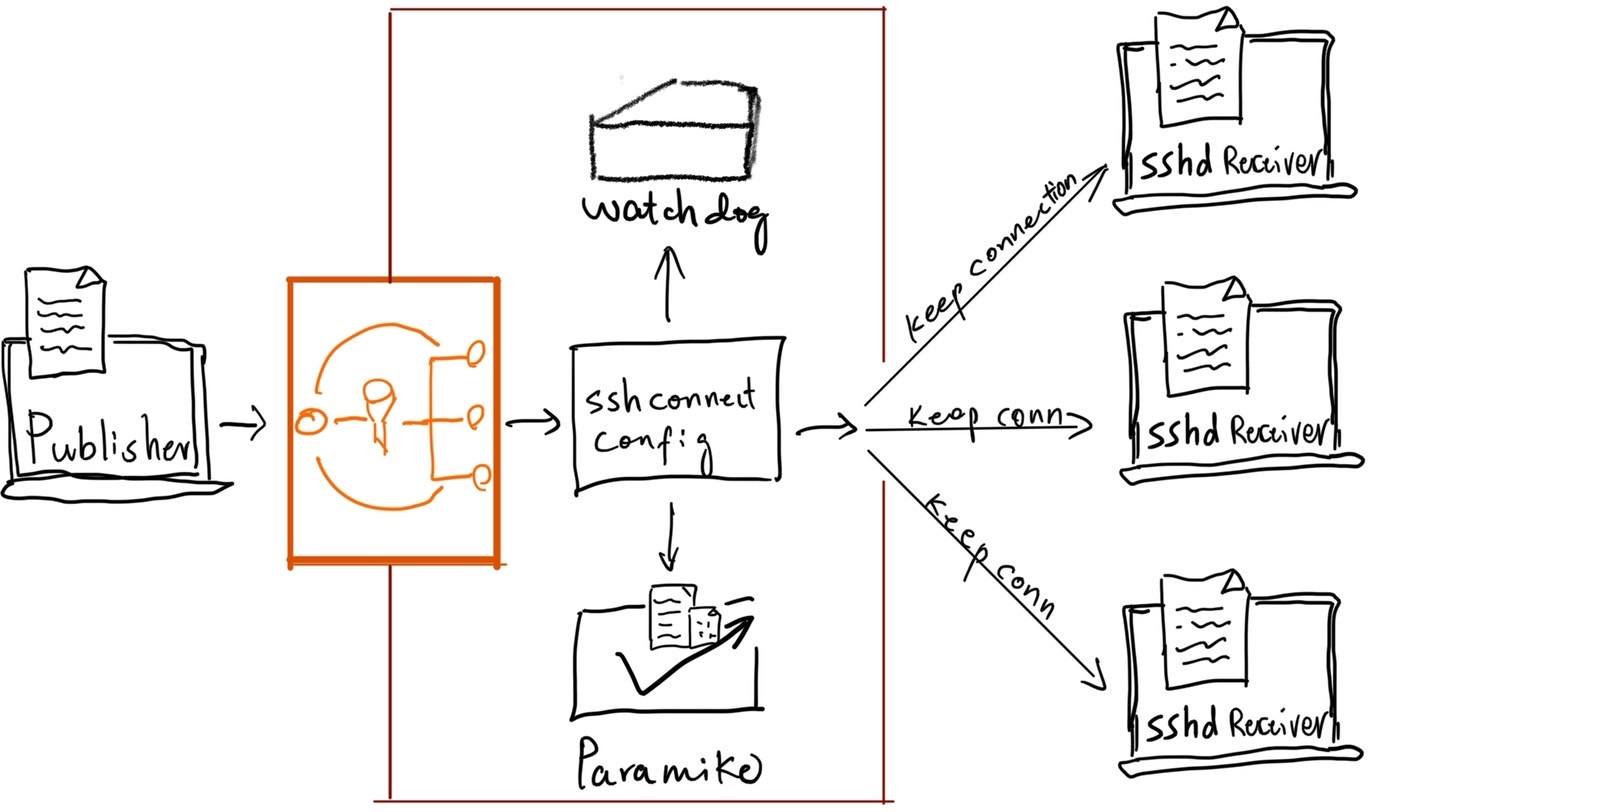 watchdog
Publisher
ssh connect
config
Paramiko
keep connection
keep conn
keep conn
sshd Receiver
sshd Receiver
sshd Receiver